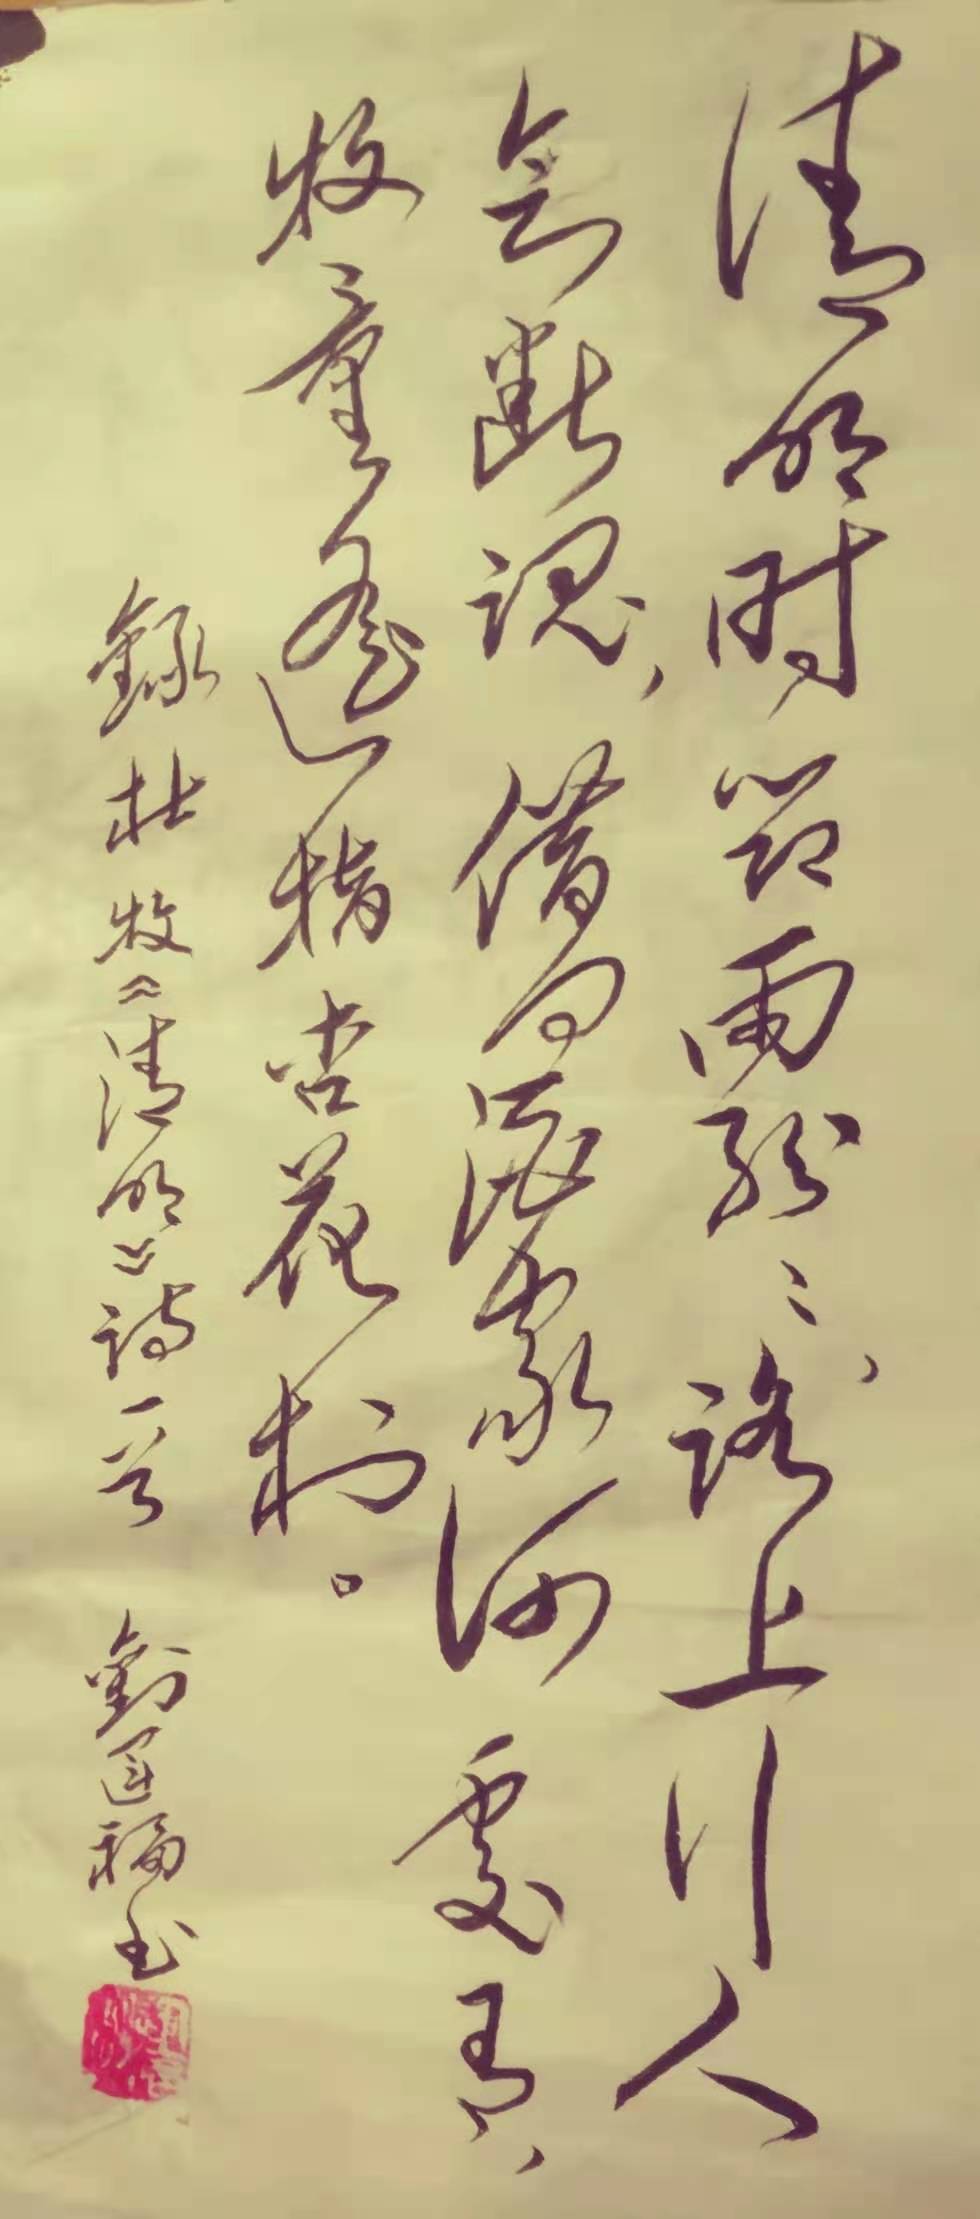 清明时节雨紛〻，路上行人
欲断魂，借问酒家何處有，
牧童遙指杏花村。
錄杜牧《清明》詩一首 劉运福书